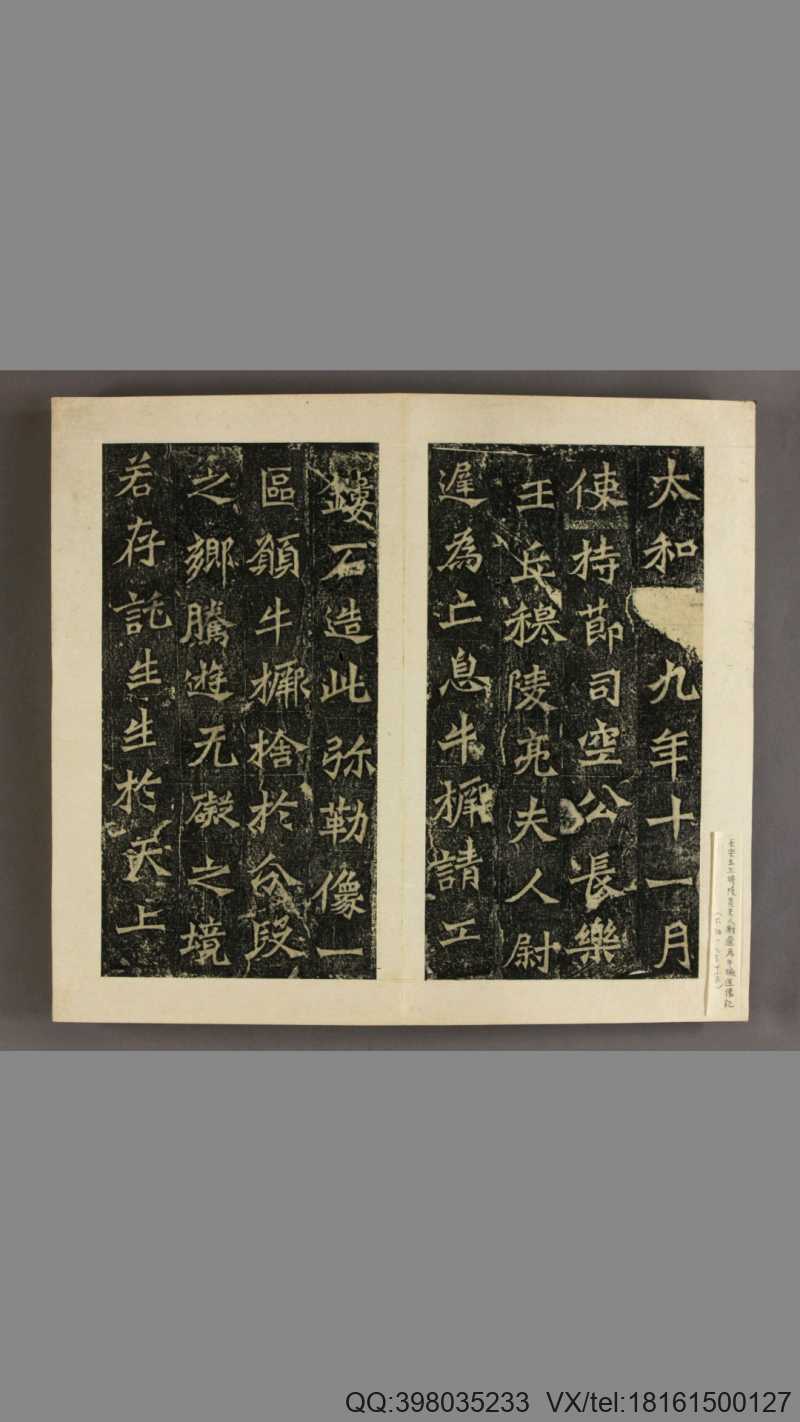 太和九年十一月
使持節司空公長樂
王丘穆陵亮夫人尉
遲為亡息牛橛請工
鏤石造此弥勒像一
區願牛橛捨於分段
之鄉騰遊无礙之境
若存託生生於天上
QQ:398035233 VX/tel:18161500127